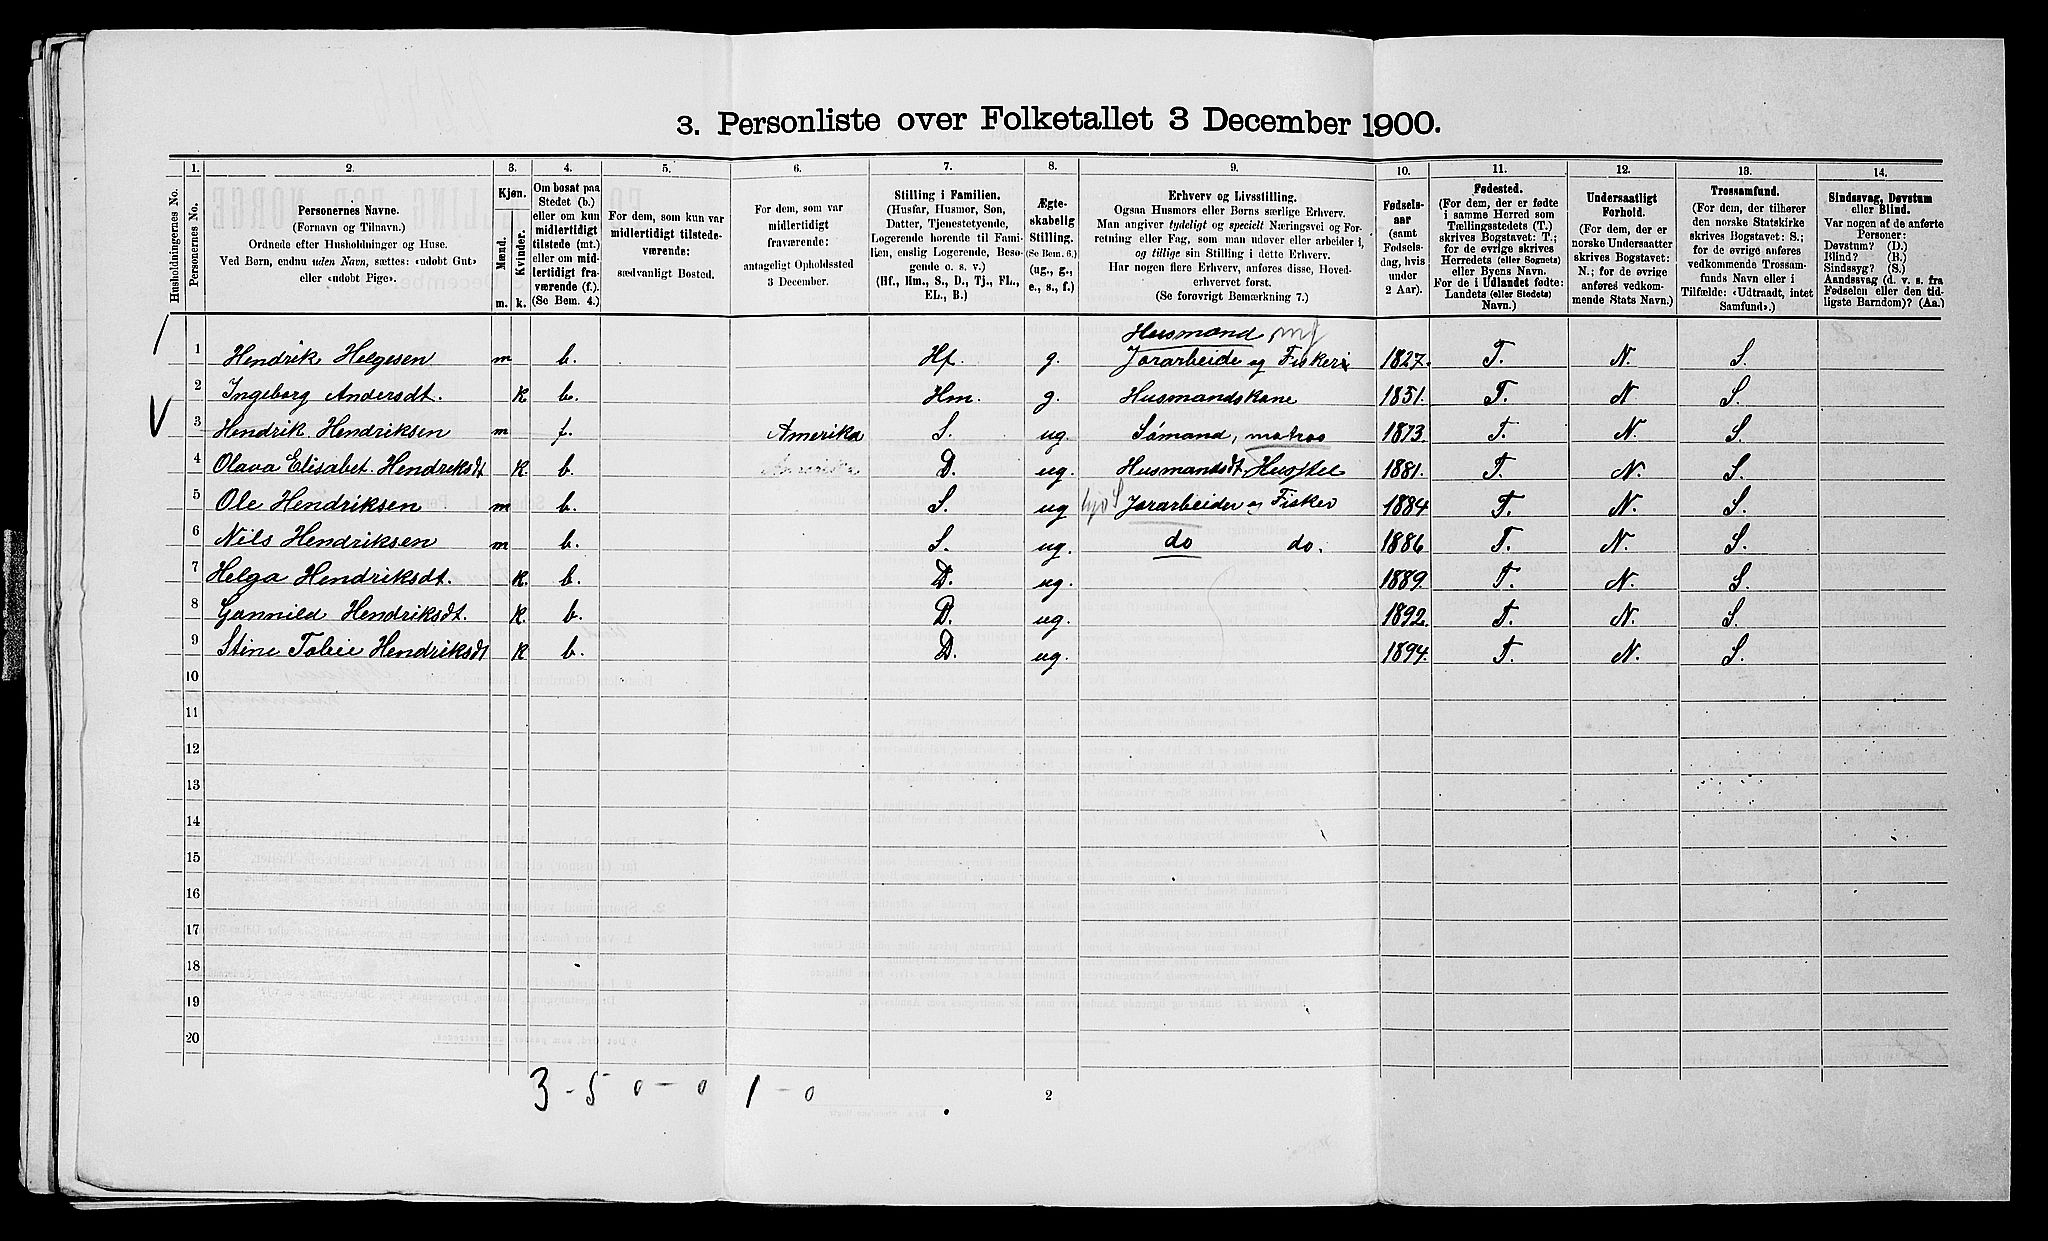 3. Personliste over Folketallet 3 December 1900.
1. 2. 3. 4. 5. 6. 7. 8. 9. 10. 11. 12. 13. 14.
Husholdningernes No.
Personernes No.
Personernes Navne.
(Fornavn og Tilnavn.)
Ordnede efter Husholdninger og Huse.
Ved Børn, endnu uden Navn, sættes: «udøbt Gut»
eller «udøbt Pige».
Kjøn.
Mænd.
Kvinder.
m. k.
Om bosat paa
Stedet (b.)
eller om kun
midlertidigt
tilstede (mt.)
eller om mid-
lertidigt fra-
værende (f.).
(Se Bem. 4.)
For dem, som kun var
midlertidigt tilstede-
værende:
sædvanligt Bosted.
For dem, som var
midlertidigt
fraværende:
antageligt Opholdssted
3 December.
Stilling i Familien.
(Husfar, Husmor, Søn,
Datter, Tjenestetyende,
Logerende hørende til Fami-
lien, enslig Logerende, Besø-
gende o. s. v.)
(Hf., Hm., S., D., Tj., FL.,
EL., B.)
Ægte-
skabelig
Stilling.
(Se Bem. 6.)
(ug., g.,
e., s., f.)
Erhverv og Livsstilling.
Ogsaa Husmors eller Børns særlige Erhverv.
Man angiver tydeligt og specielt Næringsvei og For-
retning eller Fag, som man udøver eller arbeider i,
og tillige sin Stilling i dette Erhverv.
Har nogen flere Erhverv, anføres disse, Hoved-
erhvervet først.
(Se forøvrigt Bemærkning 7.)
Fødsels-
aar
(samt
Fødsels-
dag, hvis
under
2 Aar).
Fødested.
(For dem, der er fødte
i samme Herred som
Tællingsstedets (T.)
skrives Bogstavet: T.;
for de øvrige skrives
Herredets (eller Sognets)
eller Byens Navn.
For de i Udlandet fødte:
Landets (eller Stedets)
Navn.)
Undersaatligt
Forhold.
(For dem, der er
norske Undersaatter
skrives Bogstavet:
N.; for de øvrige
anføres vedkom-
mende Stats Navn.)
Trossamfund.
(For dem, der tilhører
den norske Statskirke
skrives Bogstavet: S.;
for de øvrige anføres
vedkommende Trossam-
funds Navn eller i
Tilfælde: «Udtraadt, intet
Samfund».)
Sindssvag, Døvstum
eller Blind.
Var nogen af de anførte
Personer:
Døvstum? (D.)
Blind? (B.)
Sindssyg? (S.)
Aandssvag (d. v. s. fra
Fødselen eller den tid-
ligste Barndom)? (Aa.)
Husmand
1 Hendrik Helgesen m b. Hf. g. Jorarbeide og Fiskeri 1827. T. N. S.
2 Ingeborg Andersdt. k b. Hm. g. Husmandskone 1851. T. N S.
3 Hendrik Hendriksen m f. Amerika S. ug. Sömand, matros 1873. T. N. S.
4 Olava Elisabet. Hendriksdt k b. Amerika D. ug. Husmandsdt. Husstel 1881. T. N. S.
5 Ole Hendriksen m b. S. ug Jorarbeider og Fisker 1884 T. N. S.
6 Nils Hendriksen m b. S. ug. do do. 1886 T. N. S.
7 Helga Hendriksdt. k. b. D. ug. 1889. T. N. S.
8 Gonnild Hendriksdt. k. b. D. ug. 1892. T. N. S.
9 Stine Tobie Hendriksdt k b. D. ug. 1894. T. N. S.
10
11
12
13
14
15
16
17
18
19
20
3 - 5 0 - 0 1 - 0
2